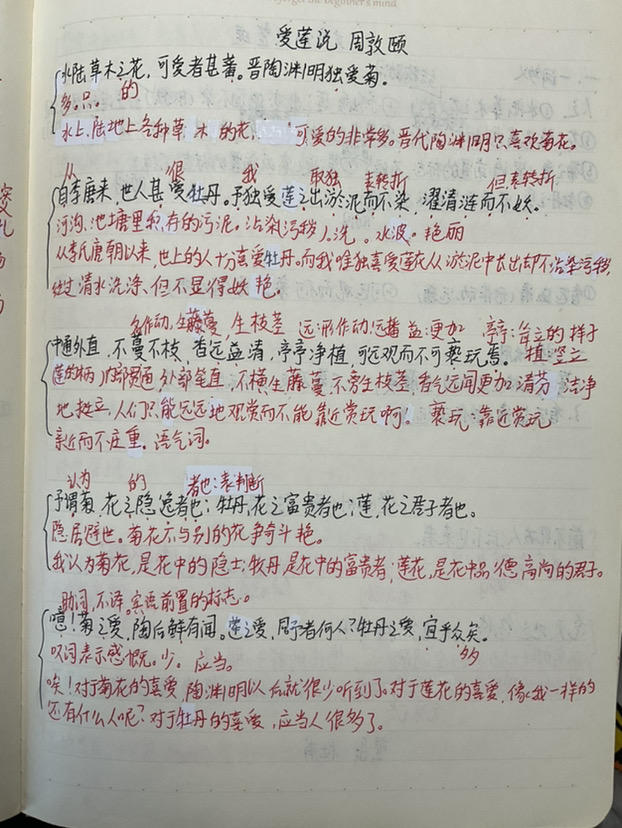 the beginner's mind
爱莲说 周敦颐
水陆草木之花，可爱者甚蕃。晋陶渊明独爱菊。
多。只。 的
水上、陆地上各种草木的花，可爱的非常多。晋代陶渊明只喜欢菊花。
从 很 我 取独 表转折 但,表转折
自李唐来，世人甚爱牡丹。予独爱莲之出淤泥而不染，濯清涟而不妖。
河沟、池塘里积存的污泥。沾染污秽。洗。水波。艳丽
从李氏唐朝以来，世上的人十分喜爱牡丹。而我唯独喜爱莲花从淤泥中长出却不沾染污秽，
经过清水洗涤、但不显得妖艳。
名作动,生藤蔓 生枝茎 远:形作动,远播 益:更加 亭亭:耸立的样子
中通外直，不蔓不枝，香远益清，亭亭净植，可远观而不可亵玩焉。 植:竖立
莲的柄内部贯通外部笔直，不横生藤蔓,不旁生枝茎,香气远闻更加清芬,洁净
地挺立，人们只能远远地观赏而不能靠近赏玩啊！ 亵玩:靠近赏玩
亲近而不庄重。语气词。
认为 的 者也:表判断
予谓菊，花之隐逸者也；牡丹，花之富贵者也；莲，花之君子者也。
隐居避世。菊花不与别的花争奇斗艳。
我认为菊花，是花中的隐士；牡丹，是花中的富贵者；莲花，是花中品德高尚的君子。
助词，不译。宾语前置的标志。
噫！菊之爱，陶后鲜有闻。莲之爱，同予者何人？牡丹之爱，宜乎众矣。
叹词,表示感慨。少。应当。 多
唉！对于菊花的喜爱,陶渊明以后就很少听到了。对于莲花的喜爱，像我一样的
还有什么人呢？对于牡丹的喜爱，应当人很多了。